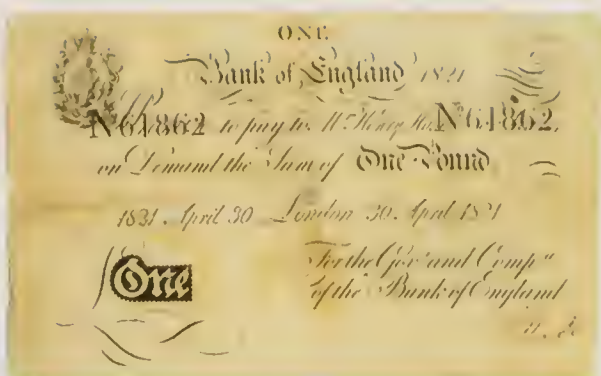 ONE
Bank of England 1821
No 61862 to pay to Mr. Henry No 61862
on Demand the Sum of One Pound
1821 April 30 London 30 April 1821
For the Govr. and Compa.
One of the Bank of England